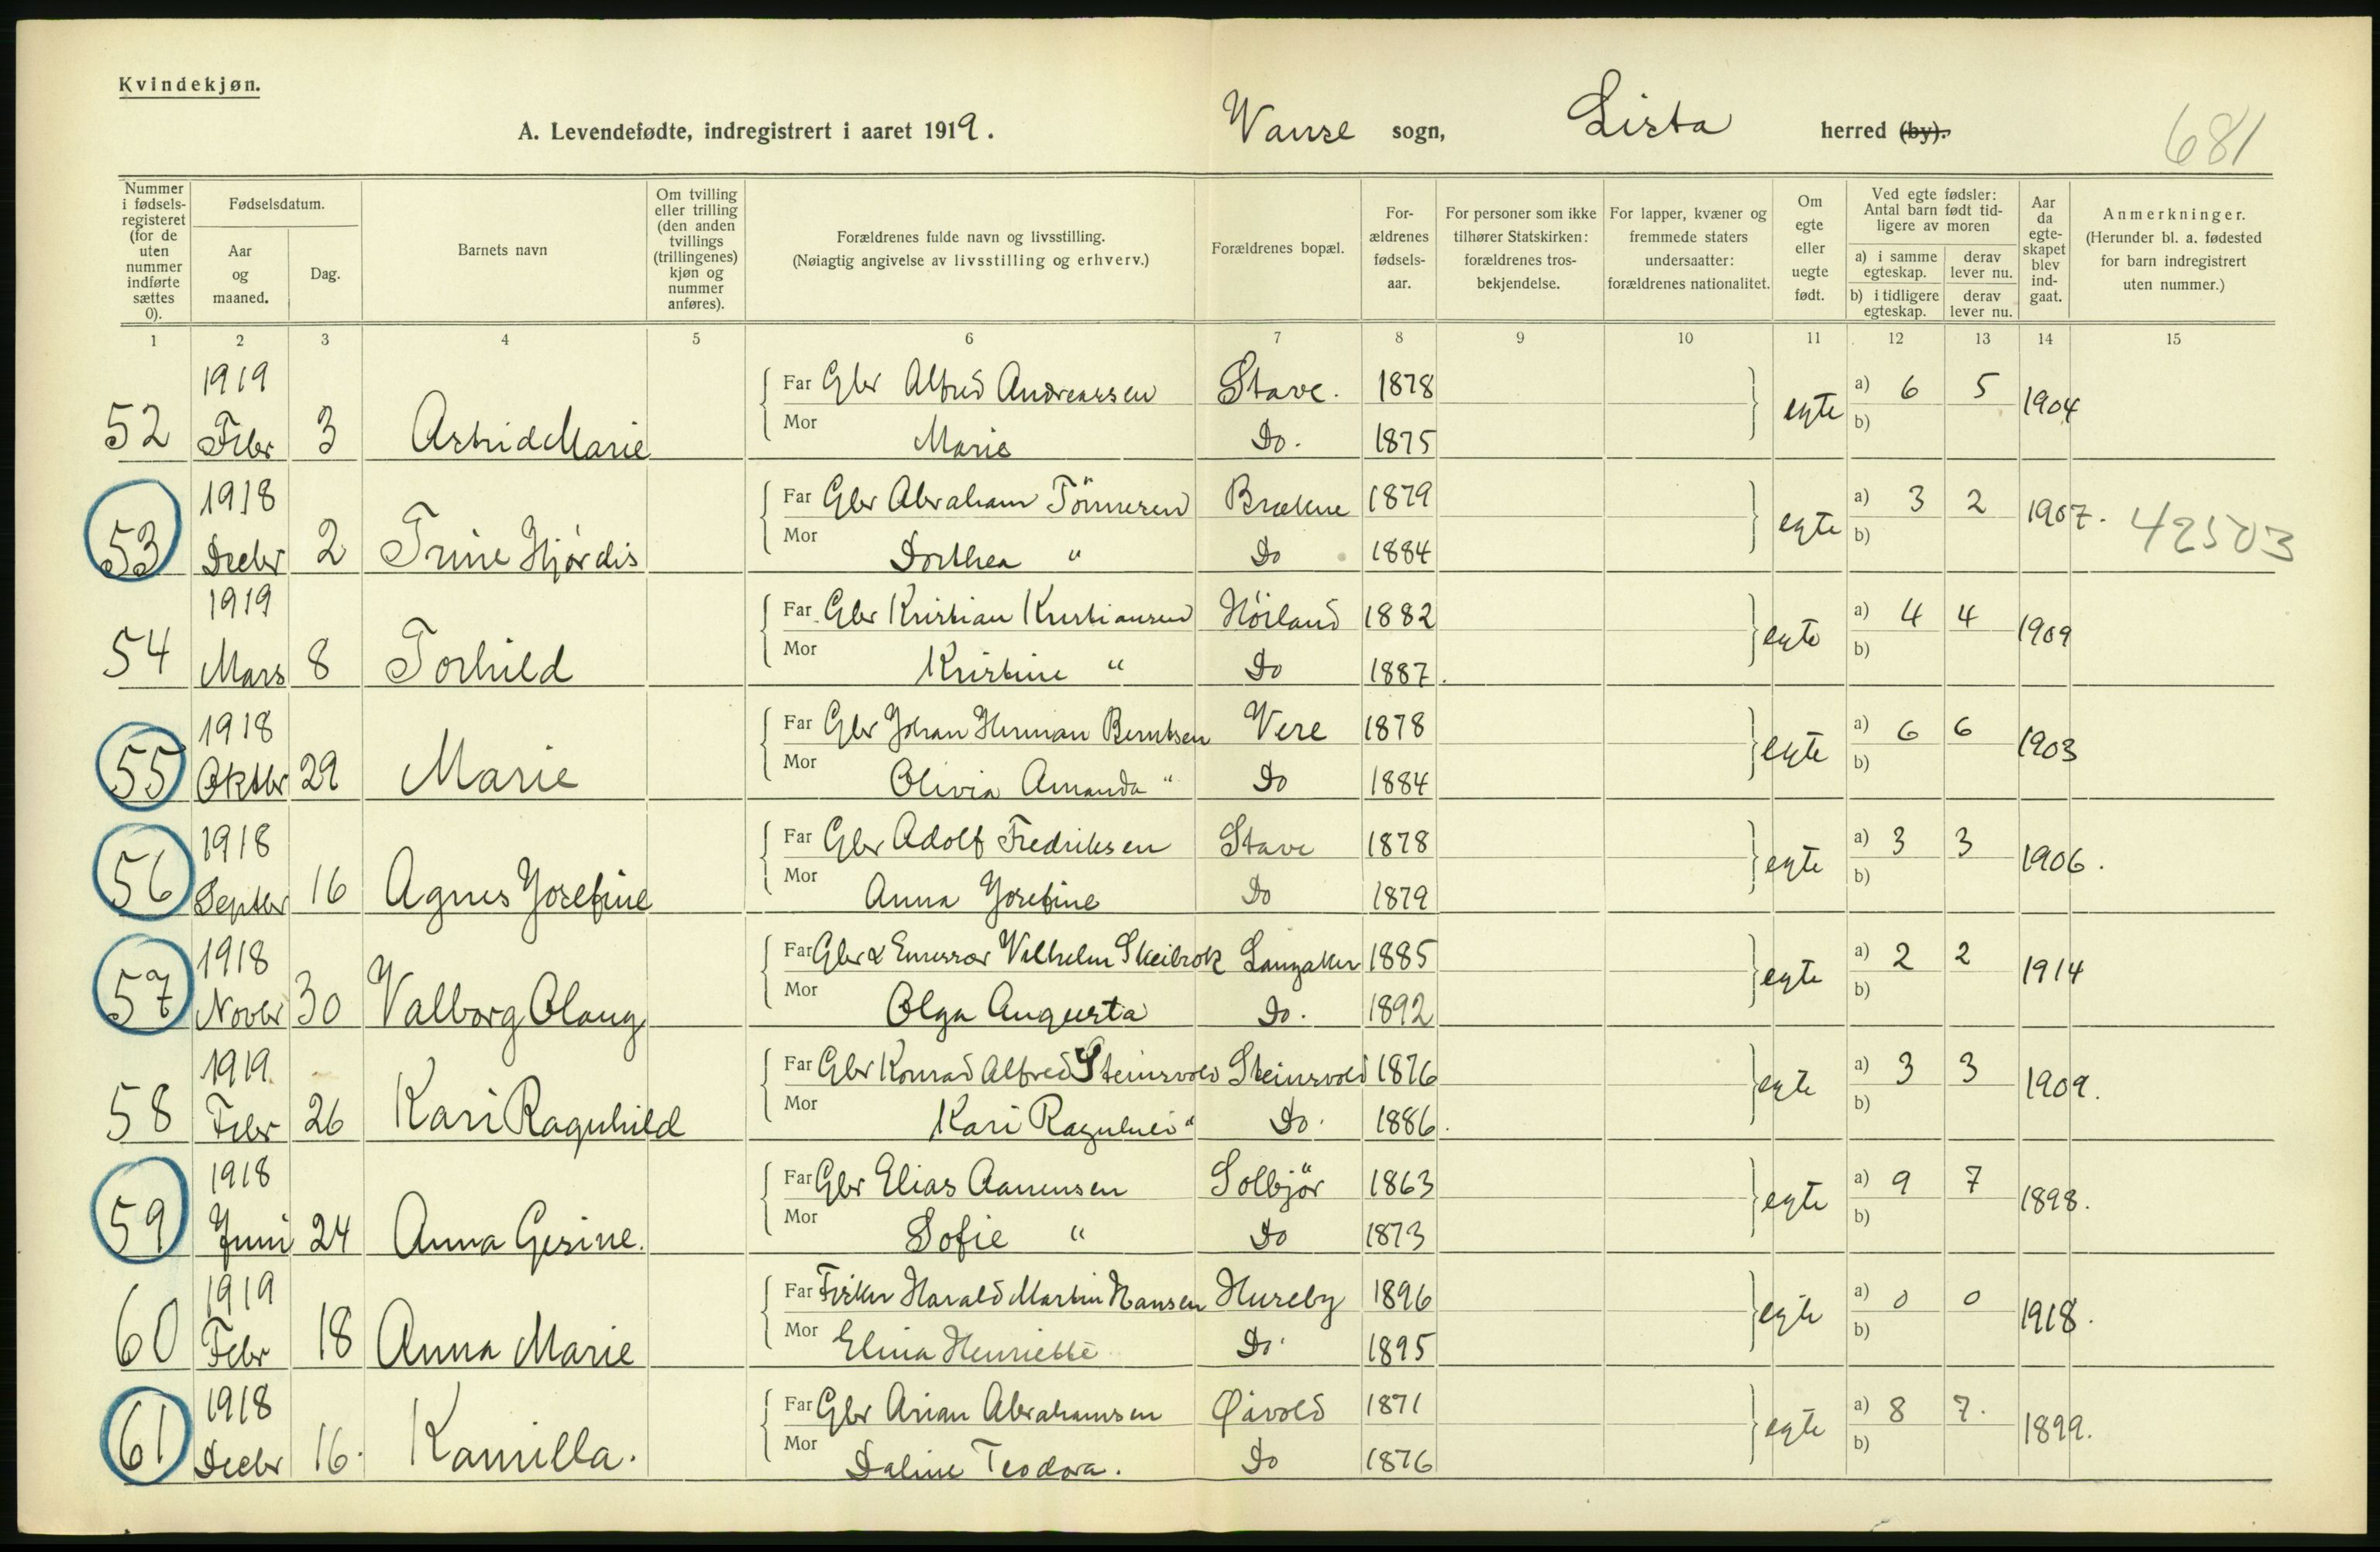 Kvindekjøn.
A. Levendefødte, indregistrert i aaret 1919. Vanse sogn, Lista herred (by). 681
Nummer i fødselsregisteret (for de uten nummer indførte sættes 0).
Fødselsdatum.
Aar og maaned.
Dag.
Barnets navn
Om tvilling eller trilling (den anden tvillings (trillingenes) kjøn og nummer anføres).
Forældrenes fulde navn og livsstilling.
(Nøiagtig angivelse av livsstilling og erhverv.)
Forældrenes bopæl.
Forældrenes fødselsaar.
For personer som ikke tilhører Statskirken: forældrenes trosbekjendelse.
For lapper, kvæner og fremmede staters undersaatter: forældrenes nationalitet.
Om egte eller uegte født.
Ved egte fødsler: Antal barn født tidligere av moren
a) i samme egteskap. derav lever nu.
b) i tidligere egteskap. derav lever nu.
Aar da egteskapet blev indgaat.
Anmerkninger.
(Herunder bl. a. fødested for barn indregistrert uten nummer.)
1 2 3 4 5 6 7 8 9 10 11 12 13 14 15
1919 Far Gbr Alfred Andreassen Stave. 1878 egte a) 6 5 1904
52 Febr 3 Astrid Marie Mor Marie Do. 1875 b)
1918 Far Gbr Abraham Tönnesen Brækne 1879 egte a) 3 2 1907. 42503
53 Decbr 2 Trine Hjørdis Mor Dorthea " Do 1884 b)
1919 Far Gbr Kristian Kristiansen Höiland 1882 egte a) 4 4 1909
54 Mars 8 Torhild Mor Kristine " Do 1887. b)
1918 Far Gbr Johan Herman Berntsen Vere 1878 egte a) 6 6 1903
55 Oktbr 29 Marie Mor Olivia Amanda " Do 1884 b)
1918 Far Gbr Adolf Fredriksen Stave 1878 egte a) 3 3 1906.
56 Septbr 16 Agnes Josefine Mor Anna Josefine Do 1879 b)
1918 Far Gbr & Vilhelm Skeibrok Langaker 1885 egte a) 2 2 1914
57 Novbr 30 Valborg Olaug Mor Olga Augusta Do. 1892 b)
1919. Far Gbr Konrad Alfred Steinsvold Steinsvold 1876 egte a) 3 3 1909.
58 Febr 26 Kari Ragnhild Mor Kari Ragnhild " Do. 1886. b)
1918 Far Gbr Elias Aanensen Solbjör 1863 egte a) 9 7 1898.
59 Juni 24 Anna Gesine. Mor Sofie " Do 1873 b)
1919 Far Fisker Harald Martin Hansen Huseby 1896 egte a) 0 0 1918.
60 Febr 18 Anna Marie Mor Elina Henriette Do. 1895 b)
1918 Far Gbr Arian Abrahamsen Øivold 1871 egte a) 8 7. 1899.
61 Decbr 16. Kamilla. Mor Daline Teodora. Do 1876 b)